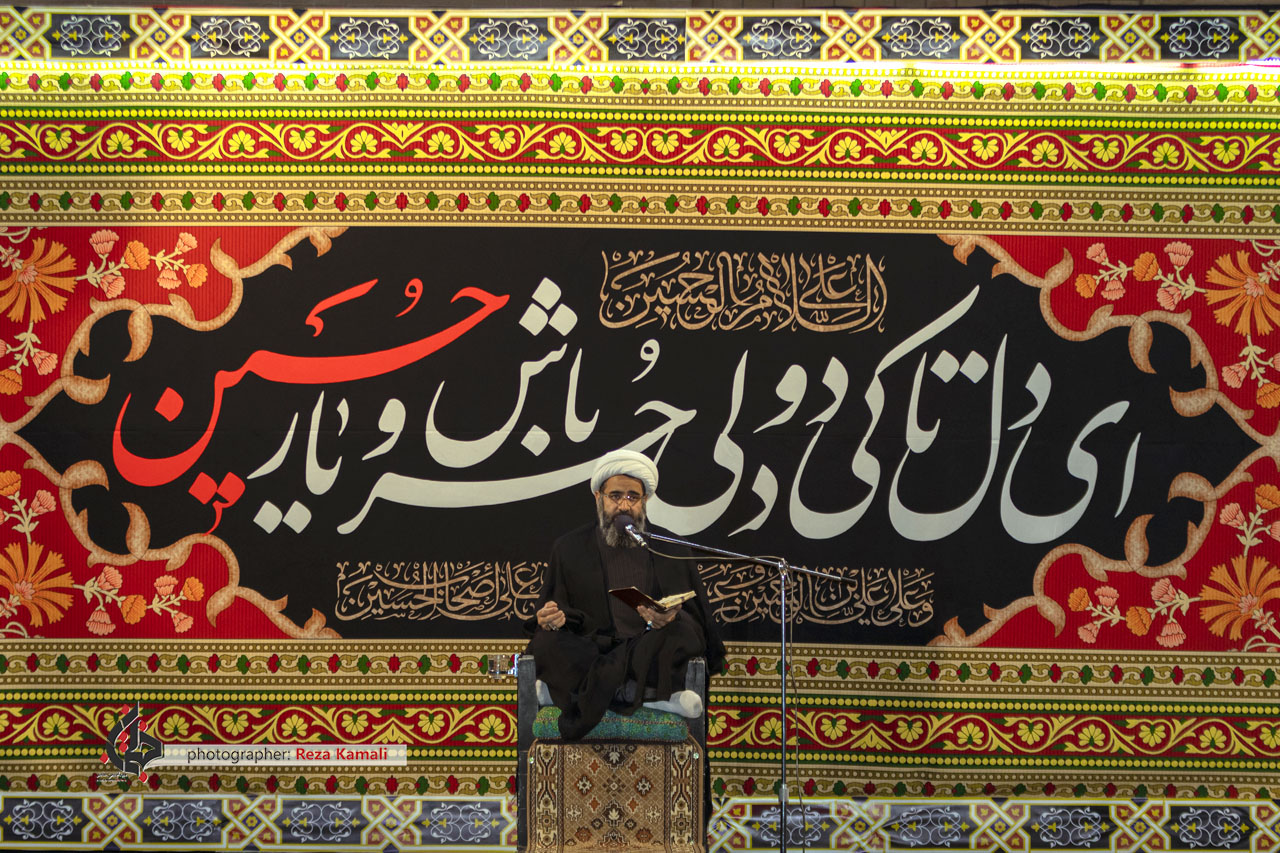 السلام علی الحسین
ای دل تا کی دو دلی حر باش و یار حسین
وعلی علی بن الحسین
وعلی أصحاب الحسین
photographer: Reza Kamali